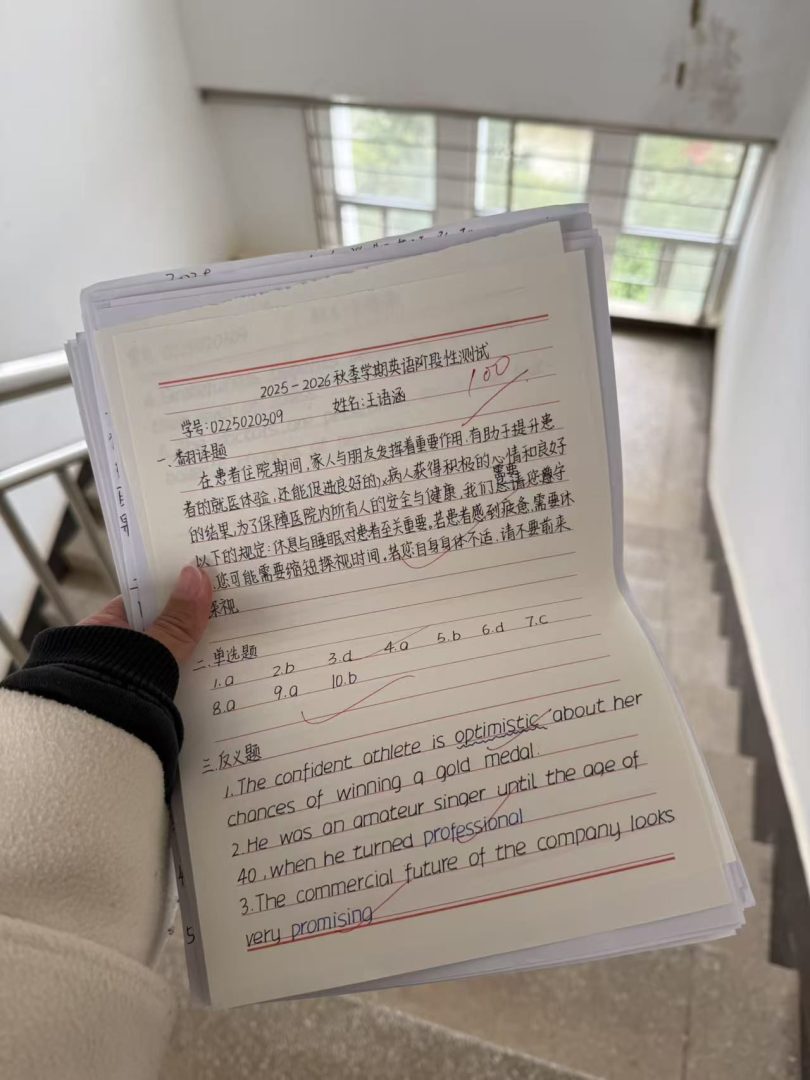 2025-2026秋季学期英语阶段性测试
100
学号:0225020309 姓名:王语涵
一.翻译题
在患者住院期间,家人与朋友发挥着重要作用.有助于提升患
者的就医体验,还能促进良好的,病人获得积极的心情和良好
的结果,为了保障医院内所有人的安全与健康,我们需要您遵守
以下的规定:休息与睡眠对患者至关重要,若患者感到疲惫,需要休
,您可能需要缩短探视时间,若您自身身体不适.请不要前来
探视
二.单选题
1.a 2.b 3.d 4.a 5.b 6.d 7.c
8.a 9.a 10.b
三.反义题
1.The confident athlete is optimistic about her
chances of winning a gold medal.
2.He was an amateur singer until the age of
40,when he turned professional
3.The commercial future of the company looks
very promising
5